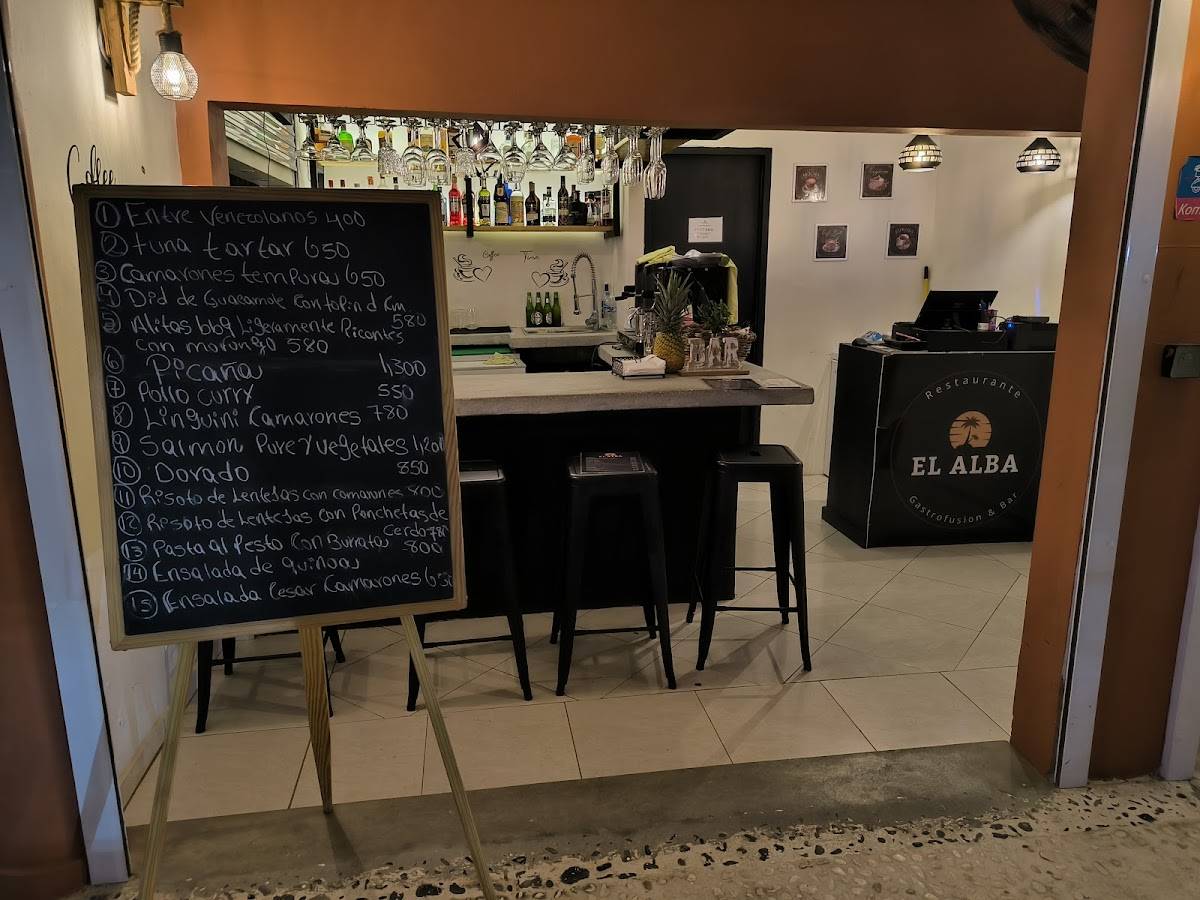 Coffee
① Entre Venezolanos 400
② tuna tartar 650
③ Camarones tempuras 650
④ Did de Guacamole Con
580
⑤ Alitas bbq Ligeramente Picantes
Con 580
⑥ Picaña 1,300
⑦ Pollo curry 550
⑧ Linguini Camarones 780
⑨ Salmon Pure y vegetales 1,200
⑩ Dorado 850
⑪ Risoto de Lentejas con camarones 800
⑫ Risoto de Lentejas con Panchetas de
Cerdo 780
⑬ Pasta al Pesto Con Burrata 800
⑭ Ensalada de quinoa
⑮ Ensalada Cesar Camarones 650
Coffee Time
BAR
Restaurante
EL ALBA
Gastrofusion & Bar
Kom